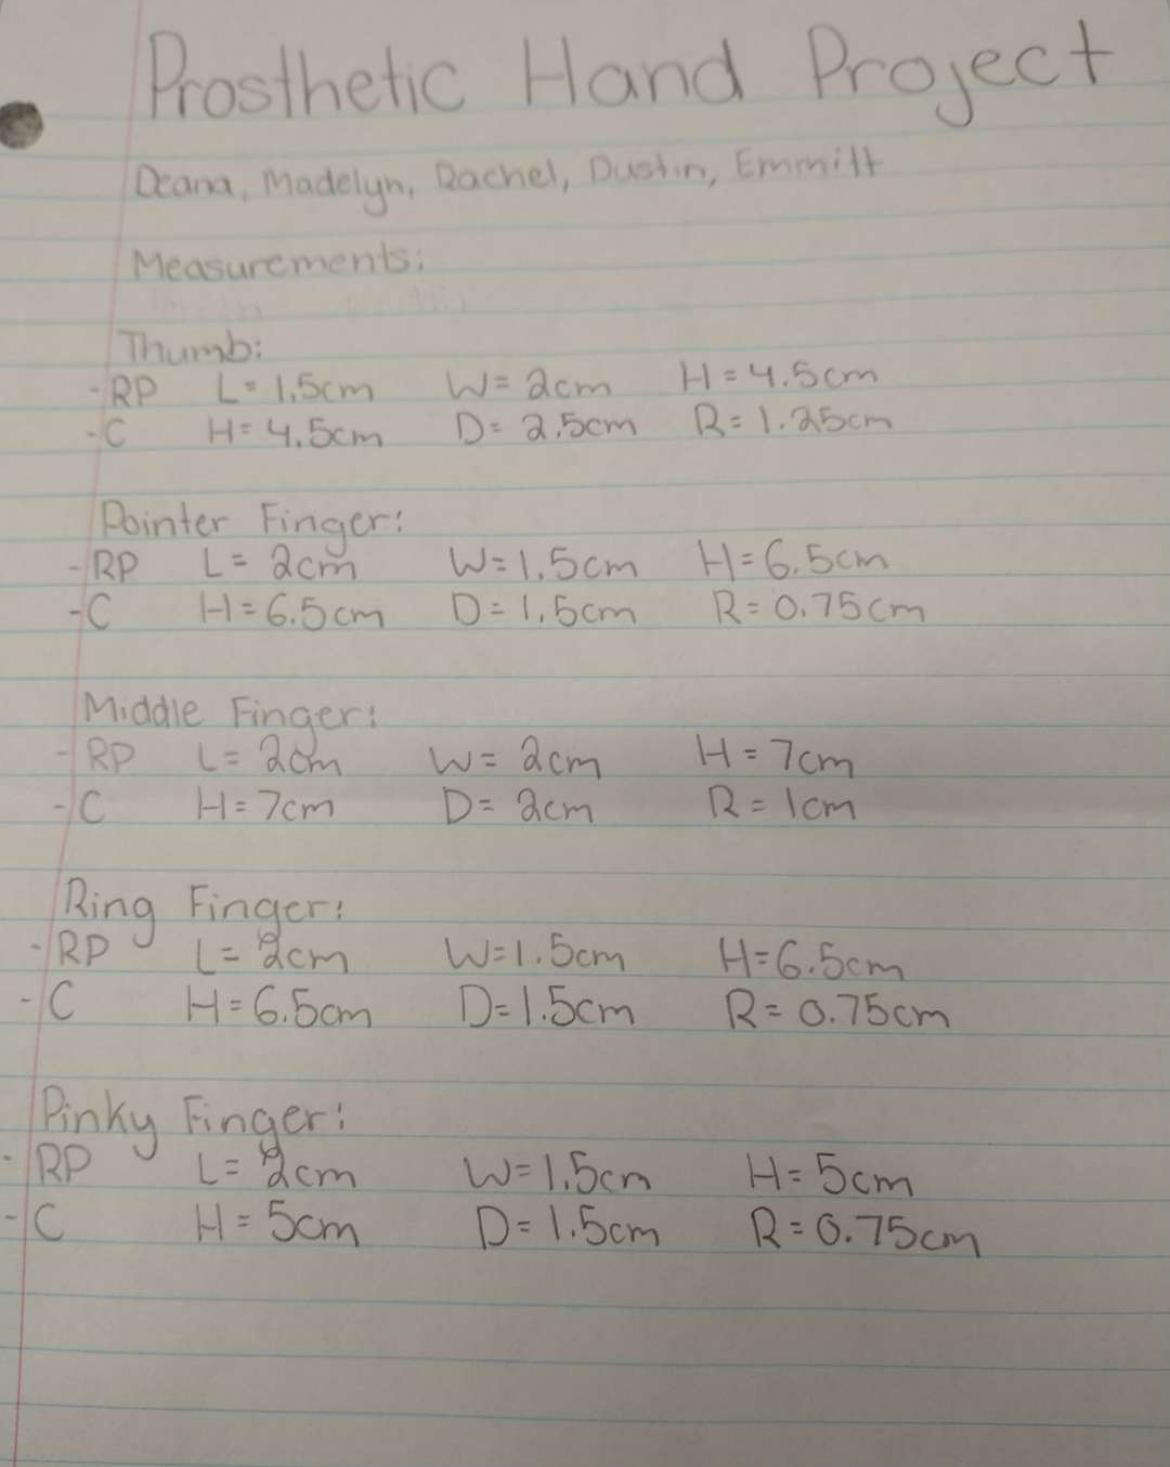 Prosthetic Hand Project
Deana, Madelyn, Rachel, Dustin, Emmitt
Measurements:
Thumb:
-RP L=1.5cm W=2cm H=4.5cm
-C H=4.5cm D=2.5cm R=1.25cm
Pointer Finger:
-RP L=2cm W=1.5cm H=6.5cm
-C H=6.5cm D=1.5cm R=0.75cm
Middle Finger:
-RP L=2cm W=2cm H=7cm
-C H=7cm D=2cm R=1cm
Ring Finger:
-RP L=2cm W=1.5cm H=6.5cm
-C H=6.5cm D=1.5cm R=0.75cm
Pinky Finger:
-RP L=2cm W=1.5cm H=5cm
-C H=5cm D=1.5cm R=0.75cm